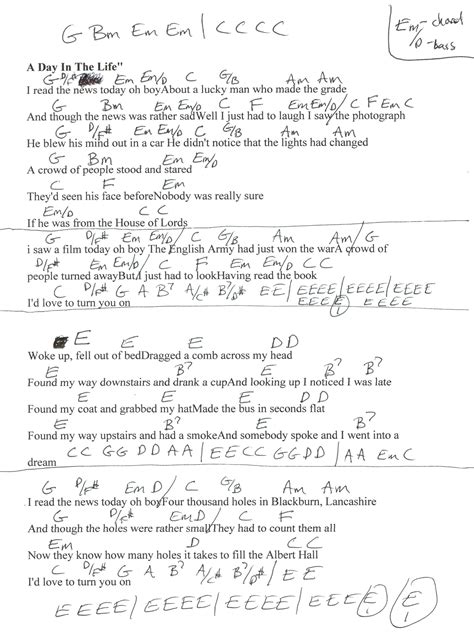 G Bm Em Em | C C C C
Em - chord
/D - bass
A Day In The Life"
G D/F# Em Em/D C G/B Am Am
I read the news today oh boyAbout a lucky man who made the grade
G Bm Em Em/D C F Em Em/D / C F Em C
And though the news was rather sadWell I just had to laugh I saw the photograph
G D/F# Em Em/D C G/B Am Am
He blew his mind out in a car He didn't notice that the lights had changed
G Bm Em Em/D
A crowd of people stood and stared
C F Em
They'd seen his face beforeNobody was really sure
Em/D C C
If he was from the House of Lords
G D/F# Em Em/D / C G/B Am Am/G
i saw a film today oh boy The English Army had just won the warA crowd of
D/F# Em Em/D / C F Em Em/D CC
people turned awayButA just had to lookHaving read the book
C D/F# G A B7 A/C# B7/D# EE | EEEE | EEEE | EEEE
I'd love to turn you on EEEE | EEEE
E E DD
Woke up, fell out of bedDragged a comb across my head
E B7 E B7
Found my way downstairs and drank a cupAnd looking up I noticed I was late
E E D D
Found my coat and grabbed my hatMade the bus in seconds flat
E B7 E B7
Found my way upstairs and had a smokeAnd somebody spoke and I went into a
CC GG DD AA | EE CC GG DD | AA Em C
dream
G D/F# Em D / C G/B Am Am
I read the news today oh boyFour thousand holes in Blackburn, Lancashire
G D/F# EmD / C F
And though the holes were rather smallThey had to count them all
Em D C C
Now they know how many holes it takes to fill the Albert Hall
C D/F# G A B7 A/C# B7/D# | E E
I'd love to turn you on
EEEE | EEEE | EEEE | EEEE | E | E